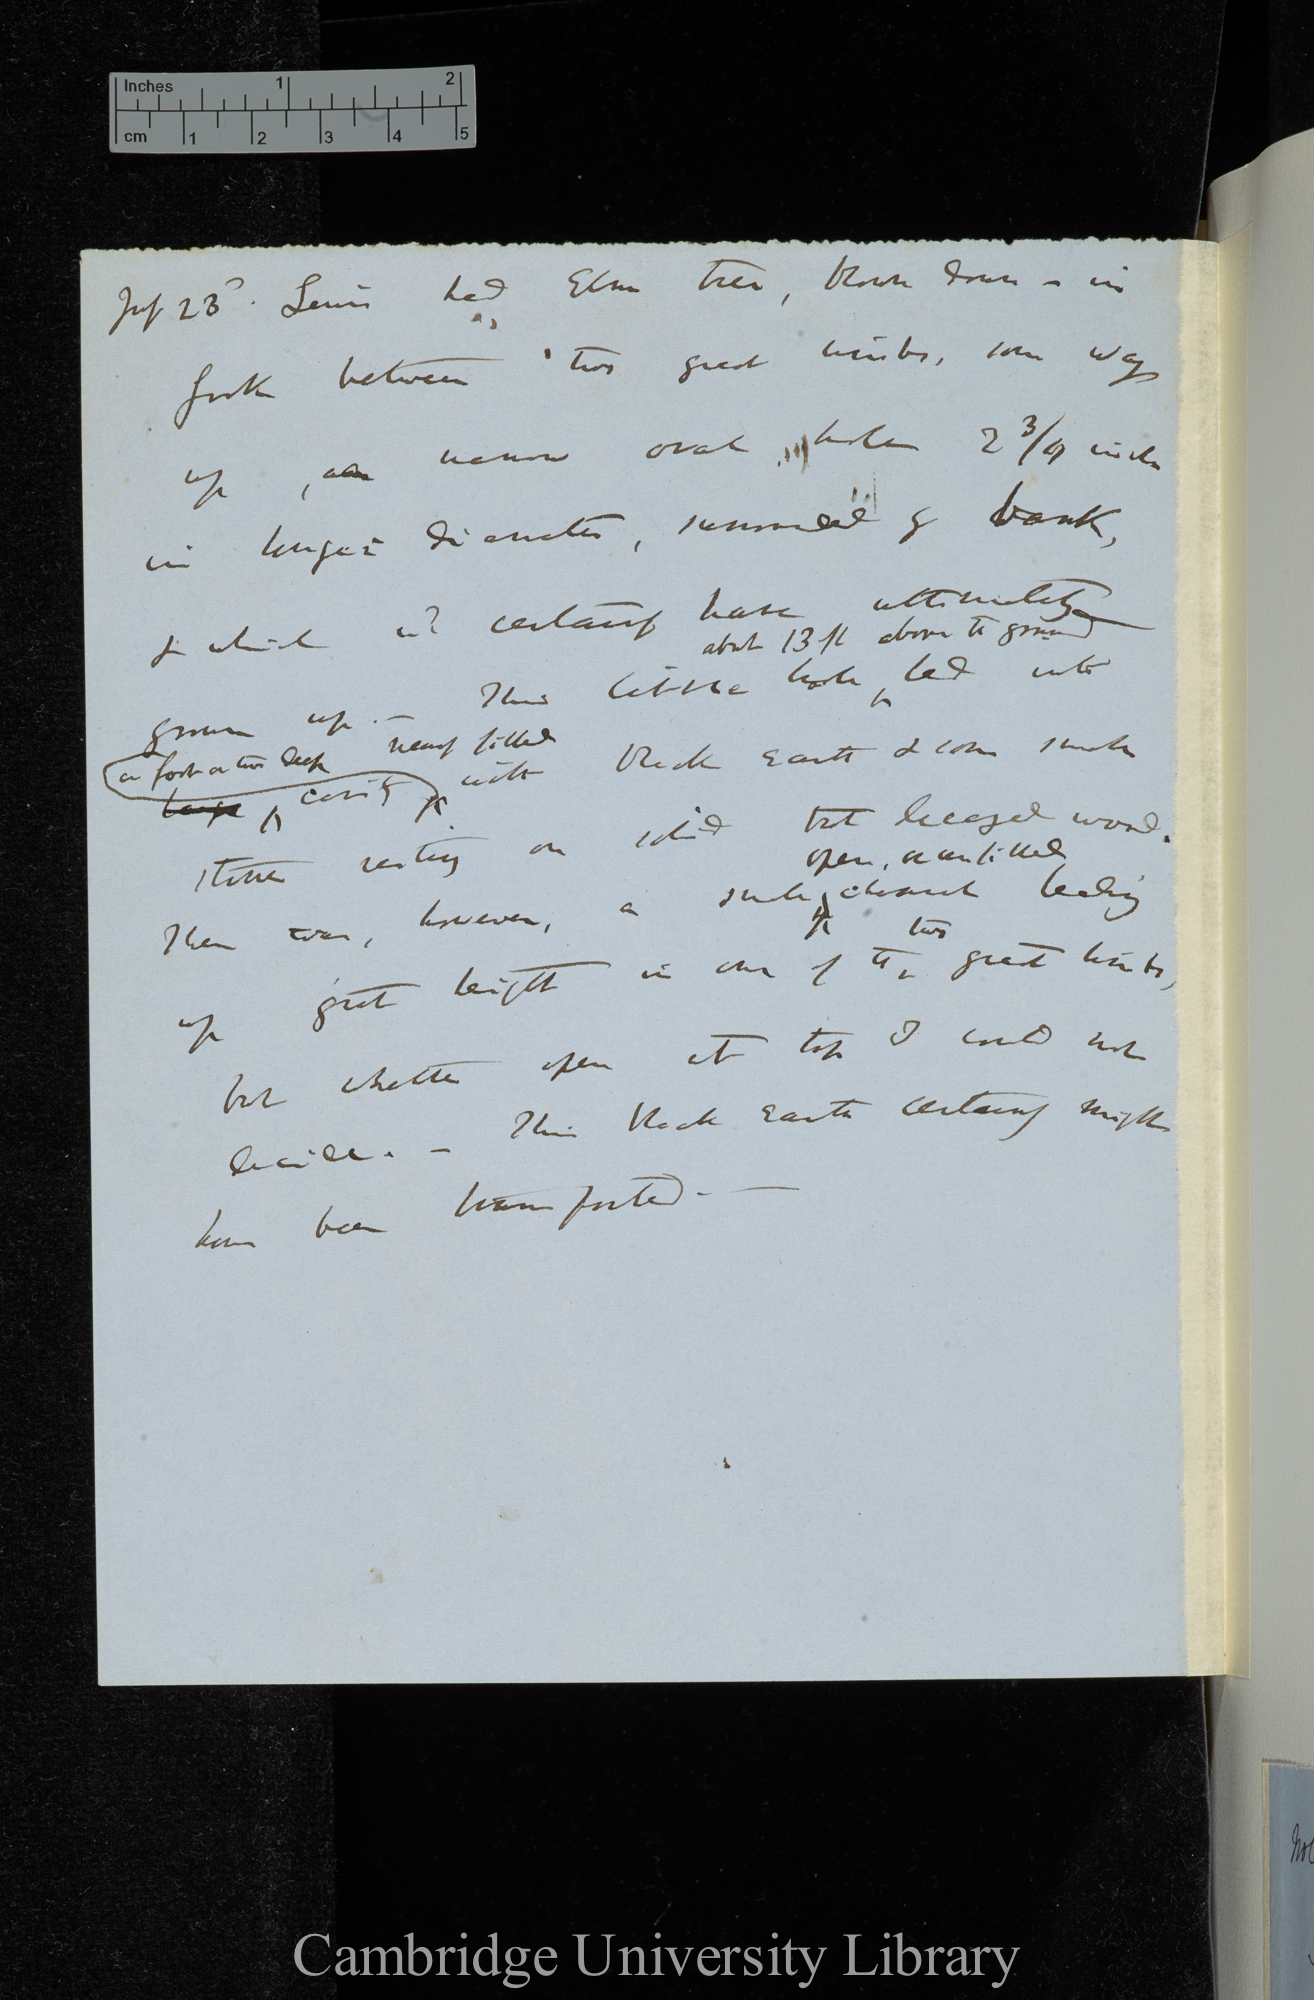 Inches 1 2
cm 1 2 3 4 5
July 23d. Lewis had Elm tree, blown down – in
fork between two great limbs, some way
up, a narrow oval hole 2 3/4 inch
in longest diameter, surrounded by bark,
& which wd certainly have ultimately
about 13 ft above the ground
grown up. — This little hole led into
a foot or two deep nearly filled
large cavity with black earth & some small
stones resting on solid but decayed wood.
open, or unfilled
There was, however, a small channel leading
two
up great height in one of the great limbs,
but whether open at top I could not
decide. — This black earth certainly might
have been transported. —
Cambridge University Library